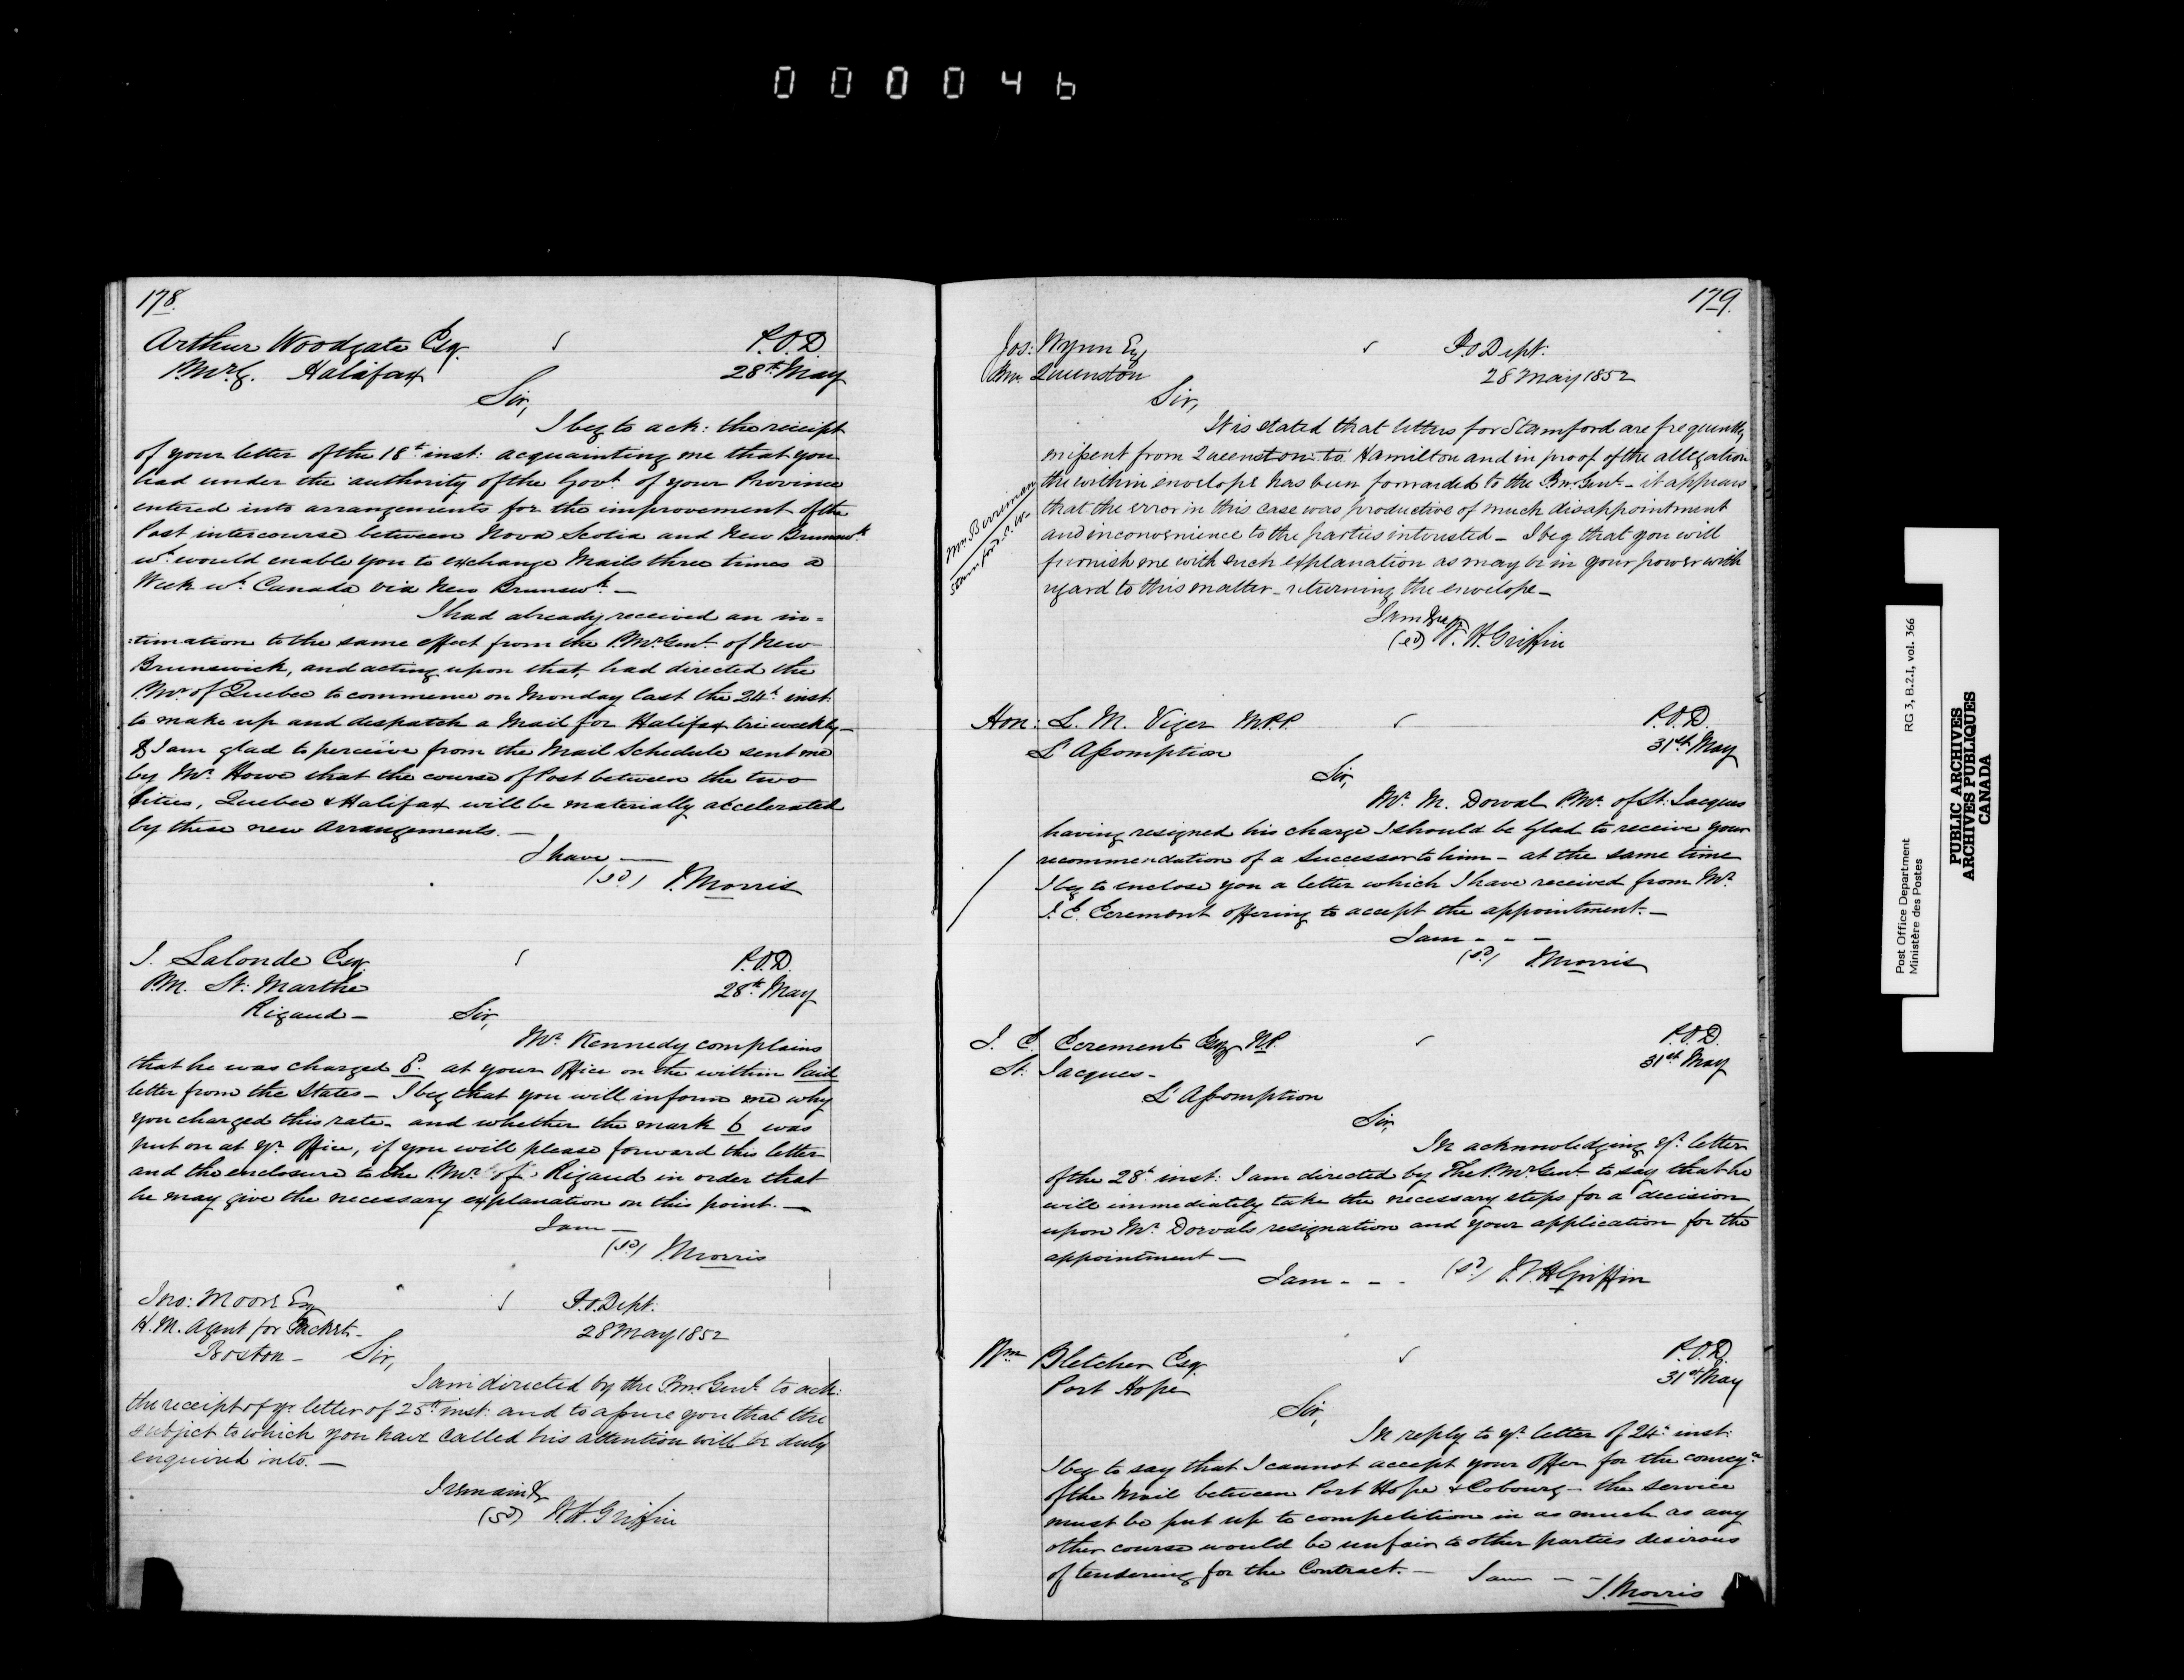 000046
178.
Arthur Woodgate Esq. P.O.D.
P.Mr.G. Halifax 28th May
Sir,
I beg to ack: the receipt
of your letter of the 18th inst: acquainting me that you
had under the authority of the Govt. of your Province
entered into arrangements for the improvement of the
Post intercourse between Nova Scotia and New Brunswk.
wh. would enable you to exchange Mails three times a
Week wh. Canada via New Brunswk. —
I had already received an in=
:timation to the same effect from the P.Mr.Genl. of New
Brunswick, and acting upon that, had directed the
P.Mr. of Quebec to commence on Monday last the 24th. inst:
to make up and despatch a Mail for Halifax tri weekly —
& I am glad to perceive from the Mail Schedule sent me
by Mr. Howe that the course of Post between the two
Cities, Quebec & Halifax will be materially accelerated
by these new Arrangements. —
I have, —
(sd) J. Morris
J. Lalonde Esq. P.O.D.
P.M. St: Marthe 28th. May
Rigaud — Sir,
Mr. Kennedy complains
that he was charged at your Office on the within Paid
letter from the States — I beg that you will inform me why
you charged this rate — and whether the mark 6 was
put on at yr. Office, if you will please forward this letter
and the enclosure to the P.Mr. of Rigaud in order that
he may give the necessary explanation on this point. —
I am —
(sd) J. Morris
Jno: Moore Esq P.O. Dept:
H.M. Agent for Packets — 28 May 1852
Boston — Sir,
I am directed by the P.m. Genl. to ack:
the receipt of yr. letter of 25th inst: and to assure you that the
subject to which you have called his attention will be duly
enquired into. —
I remain &
(sd) W.H. Griffin
179.
Jos: Wynn Esq P.O Dept:
Pm. Queenston 28 May 1852
Sir,
It is stated that letters for Stamford are frequently
missent from Queenston to Hamilton and in proof of the allegation
the within envelope has been forwarded to the P.m. Genl. — it appears
that the error in this case was productive of much disappointment
and inconvenience to the parties interested — I beg that you will
furnish me with such explanation as may be in your power with
regard to this matter — returning the envelope —
I am
(sd) W. H. Griffin
Mr. Berriman
Stamford. C.W.
Hon: L. M. Viger M.P.P. P.O.D.
L'Assomption 31st May
Sir,
Mr. M. Dorval P.Mr. of St: Jacques
having resigned his charge I should be glad to receive your
recommendation of a Successor to him — at the same time
I beg to enclose you a letter which I have received from Mr.
J. E. Ecrement offering to accept the appointment. —
I am - - -
(sd) J. Morris
J. E. Ecrement Esq N.P. P.O.D.
St. Jacques - 31st May
L'Assomption
Sir,
In acknowledging yr. letter
of the 28th. inst: I am directed by The P.Mr.Genl. to say that he
will immediately take the necessary steps for a decision
upon Mr. Dorvals resignation and your application for the
appointment —
I am - - - (sd) W.H Griffin
Wm. Bletcher Esq. P.O.D.
Port Hope 31st May
Sir,
In reply to yr. letter of 24th. inst:
I beg to say that I cannot accept your Offer for the convey.ce
of the Mail between Port Hope & Cobourg — the service
must be put up to competition in as much as any
other course would be unfair to other parties desirous
of tendering for the Contract. — I am — —
J. Morris
Post Office Department RG 3, B.2.I, vol. 366
Ministère des Postes
PUBLIC ARCHIVES
ARCHIVES PUBLIQUES
CANADA